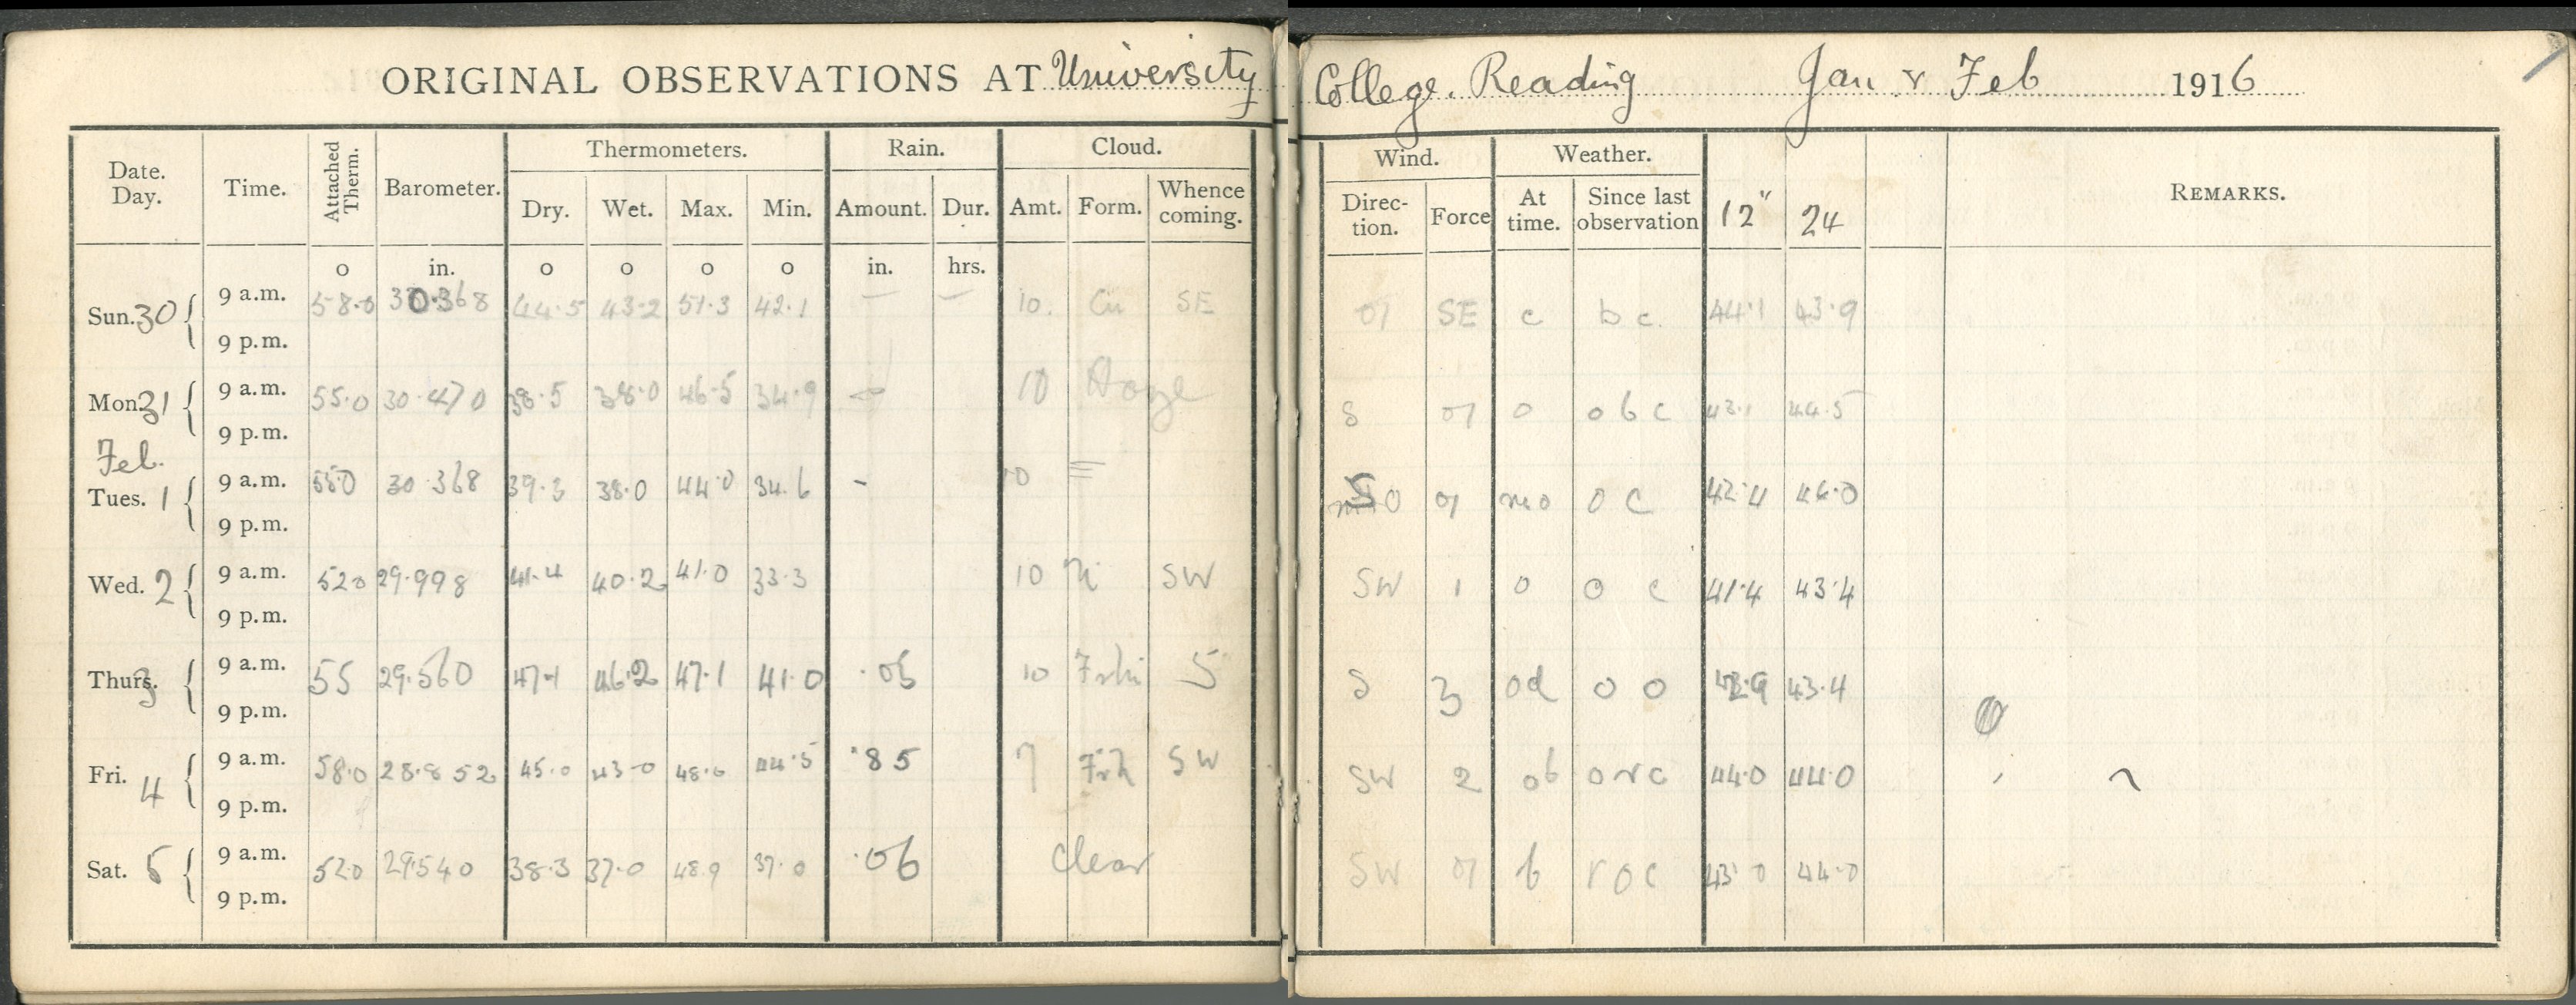 ORIGINAL OBSERVATIONS AT University College. Reading Jan & Feb 1916
Date. Day. Time. Attached Therm. Barometer. Thermometers. Rain. Cloud. Wind. Weather. REMARKS.
Dry. Wet. Max. Min. Amount. Dur. Amt. Form. Whence coming. Direc- tion. Force At time. Since last observation 12" 24
o in. o o o o in. hrs.
Sun. 30 9 a.m. 58.0 30.368 44.5 43.2 51.3 42.1 — — 10. Cu SE 01 SE c b c. 44.1 43.9
9 p.m.
Mon. 31 9 a.m. 55.0 30.470 38.5 38.0 46.5 34.9 — 10 Haze S 01 o o b c 43.1 44.5
9 p.m.
Feb.
Tues. 1 9 a.m. 55.0 30.368 39.3 38.0 44.0 34.6 - 10 ≡ S 01 mo o c 42.4 44.0
9 p.m.
Wed. 2 9 a.m. 52.0 29.998 41.4 40.2 41.0 33.3 10 Ni SW SW 1 o o c 41.4 43.4
9 p.m.
Thurs. 3 9 a.m. 55 29.560 47.1 46.2 47.1 41.0 .05 10 S S 3 od o o 42.9 43.4
9 p.m.
Fri. 4 9 a.m. 58.0 28.852 45.0 43.0 48.0 44.5 .85 7 SW SW 2 ob o r c 44.0 44.0
9 p.m.
Sat. 5 9 a.m. 52.0 29.540 38.3 37.0 48.9 37.0 .06 clear SW 01 b r o c 43.0 44.0
9 p.m.